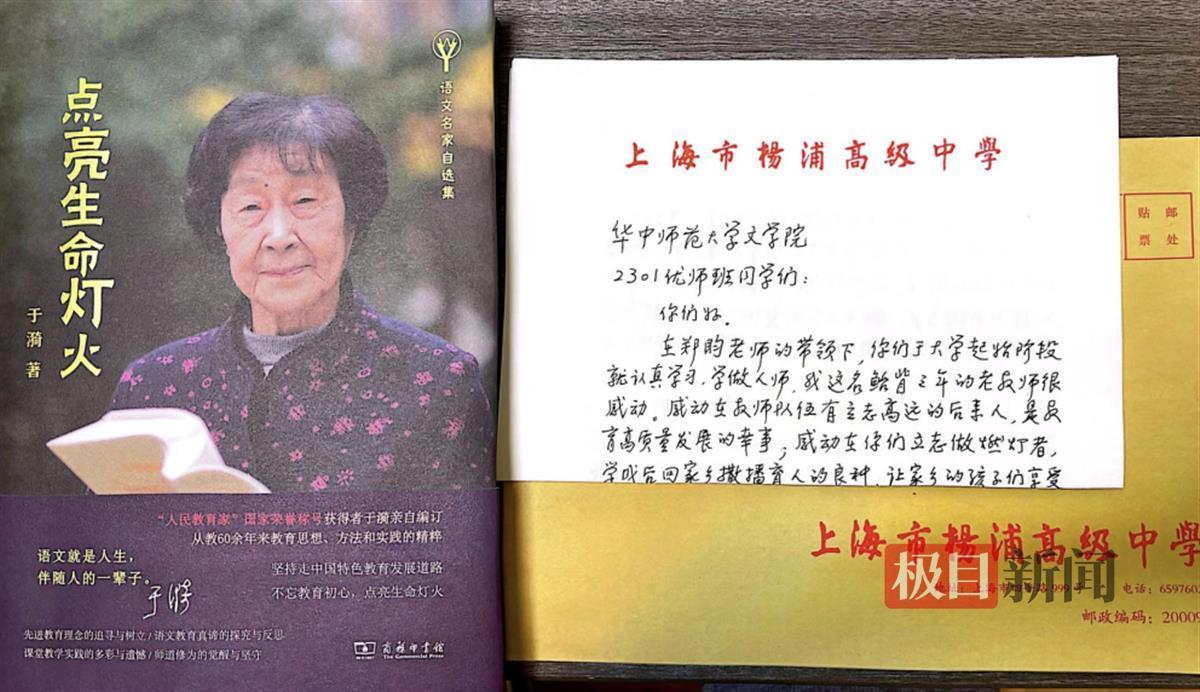 点亮生命灯火
于漪 著
语文名家自选集
“人民教育家”国家荣誉称号获得者于漪亲自编订
从教60余年来教育思想、方法和实践的精粹
坚持走中国特色教育发展道路
不忘教育初心，点亮生命灯火
语文就是人生，
伴随人的一辈子。
于漪
先进教育理念的追寻与树立/语文教育真谛的探究与反思
课堂教学实践的多彩与遗憾/师道修为的觉醒与坚守
商务印书馆
The Commercial Press
上海市楊浦高級中學
华中师范大学文学院
2301优师班同学们：
你们好。
在郑昀老师的带领下，你们于大学起始阶段
就认真学习，学做人师，我这名鲐背之年的老教师很
感动。感动在教师队伍有立志高远的后来人，是教
育高质量发展的幸事；感动在你们立志做燃灯者，
学成后回家乡撒播育人的良种，让家乡的孩子们享受
贴 邮
票 处
上海市楊浦高級中學
极目新闻
999号
电话：6597602
邮政编码：20009